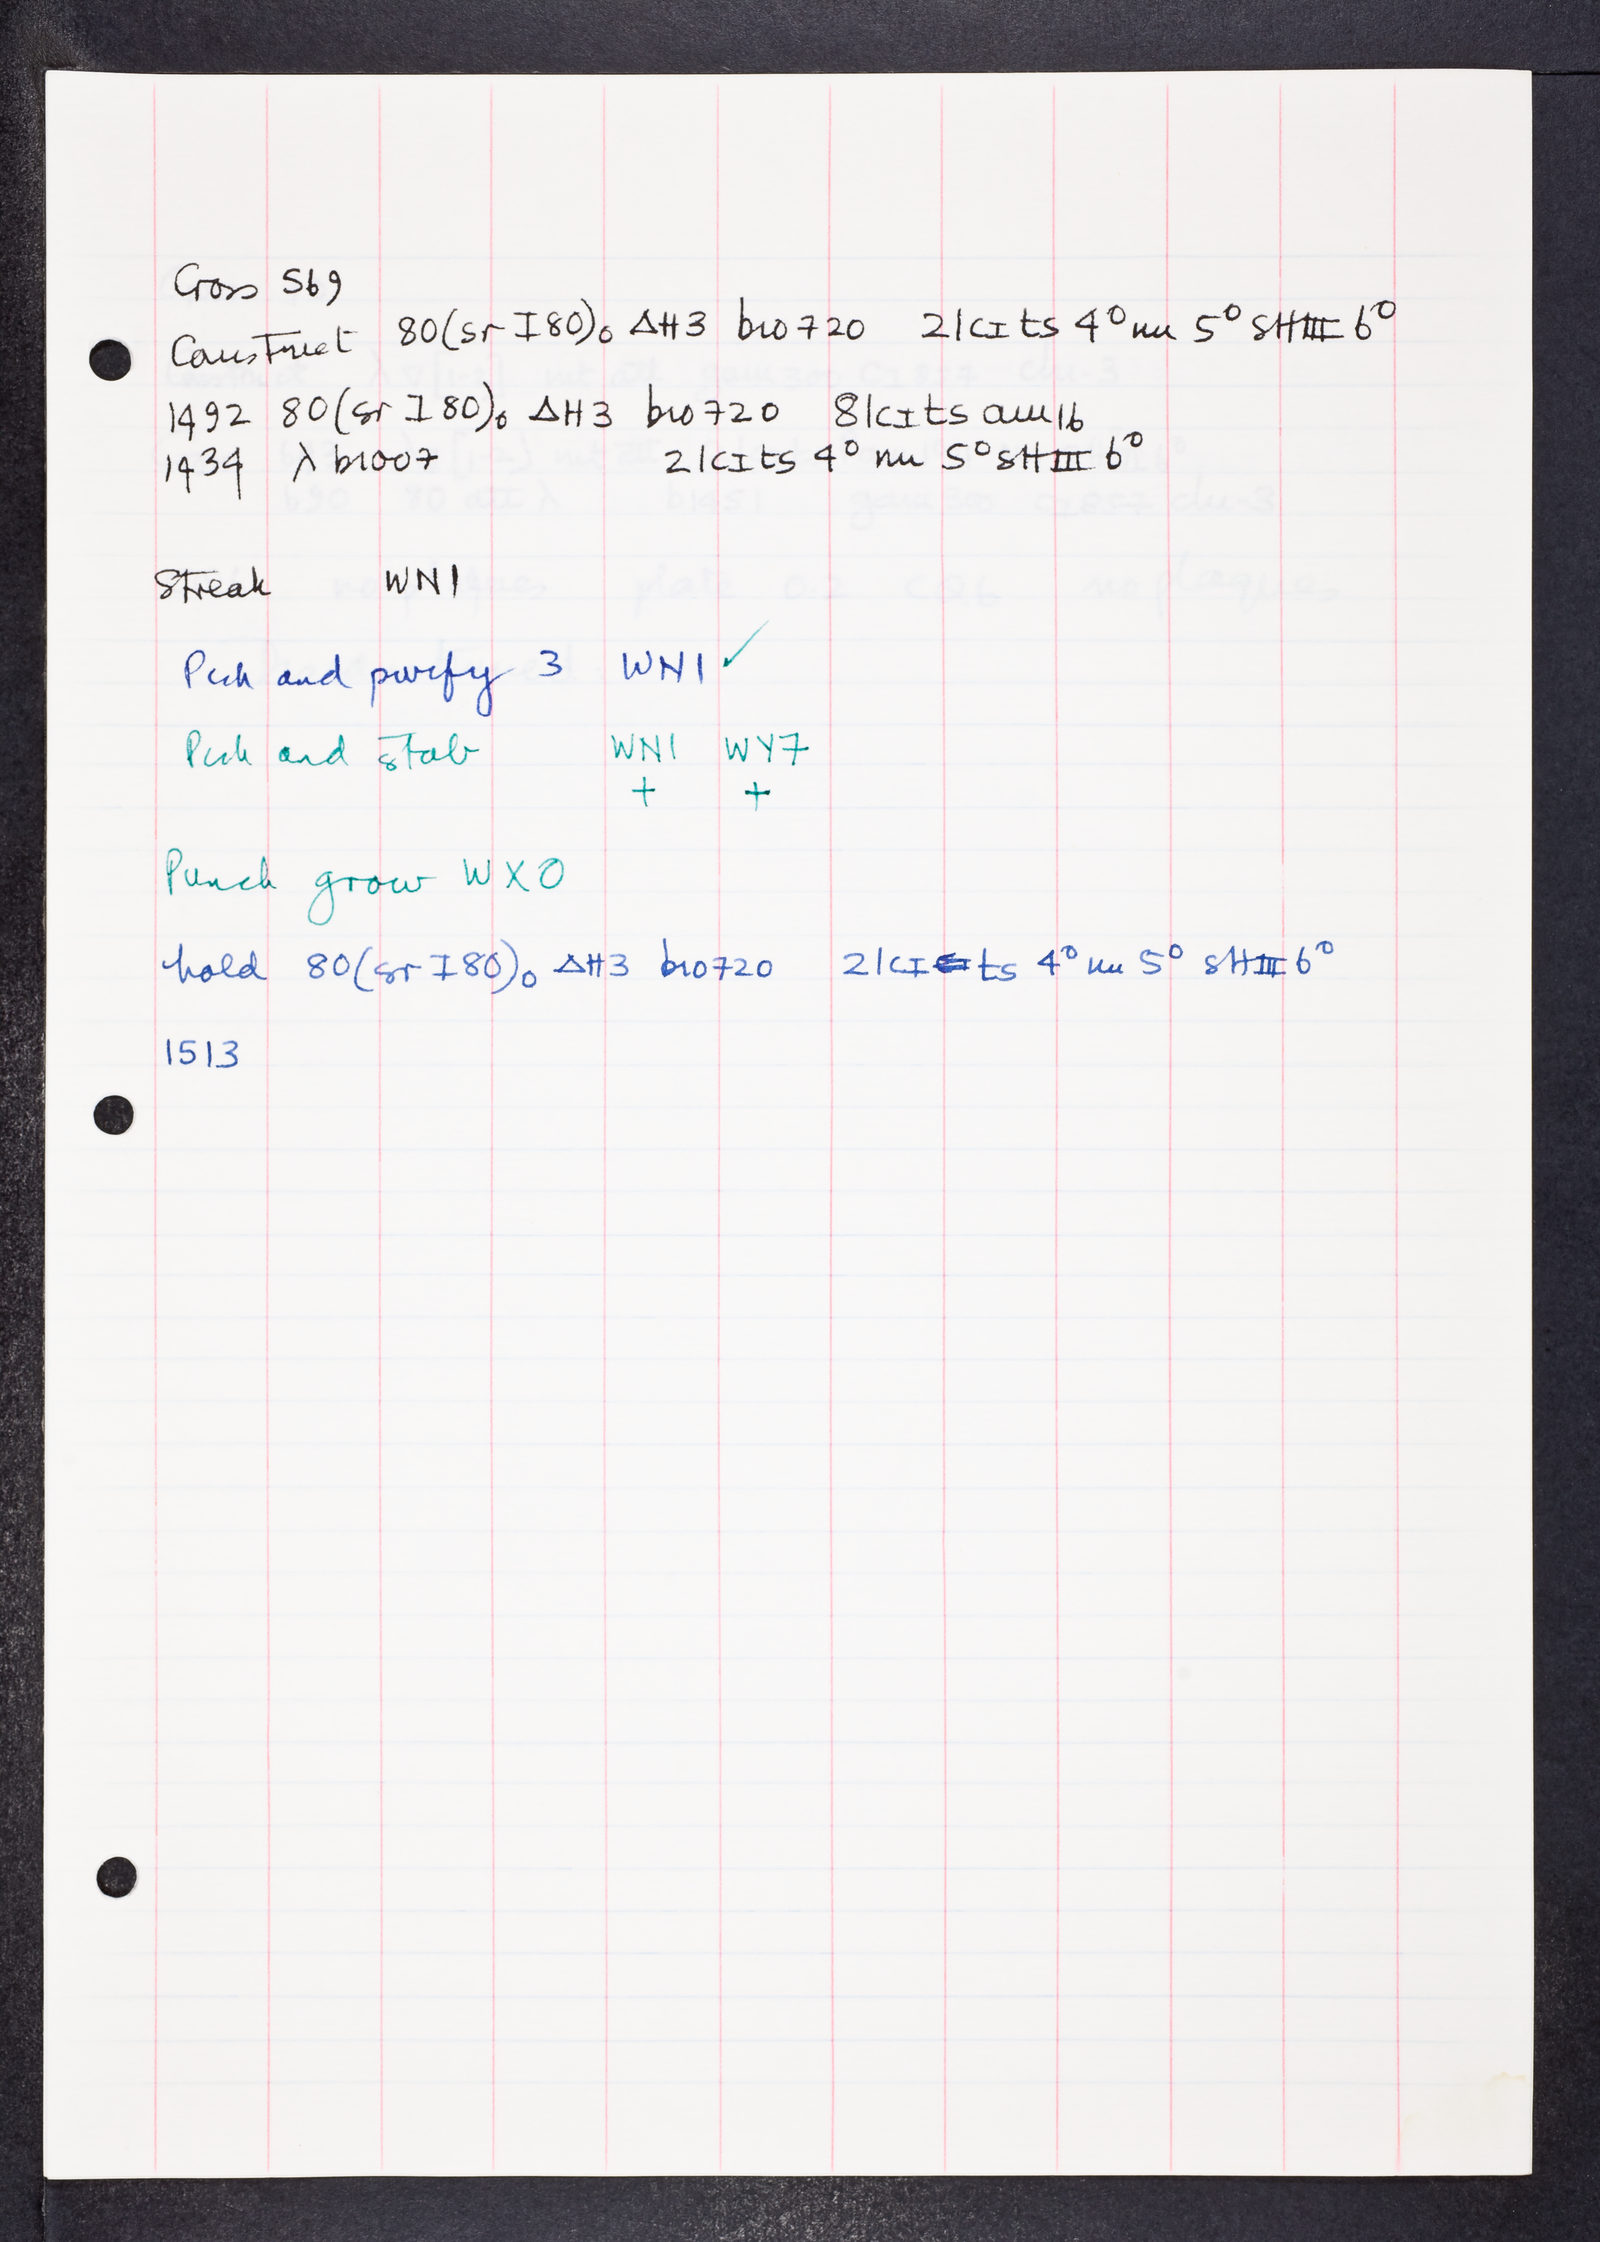 Cross 569
Construct 80(sr I 80)₀ ΔH3 bio720 21cI ts 4° nin 5° sHIII 6°
1492 80(sr I 80)₀ ΔH3 bio720 81cI ts am16
1434 λ b1007 21cI ts 4° nin 5° sHIII 6°
Streak WN1
Pick and purify 3 WN1 ✓
Pick and stab WN1 WY7
+ +
Punch grow WX0
hold 80(sr I 80)₀ ΔH3 bio720 21cI ts 4° nin 5° sHIII 6°
1513